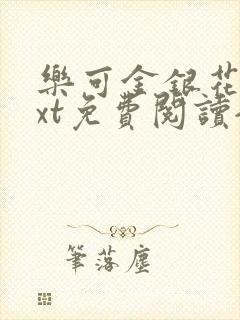 樂可金銀花
xt免費閱讀
筆落塵